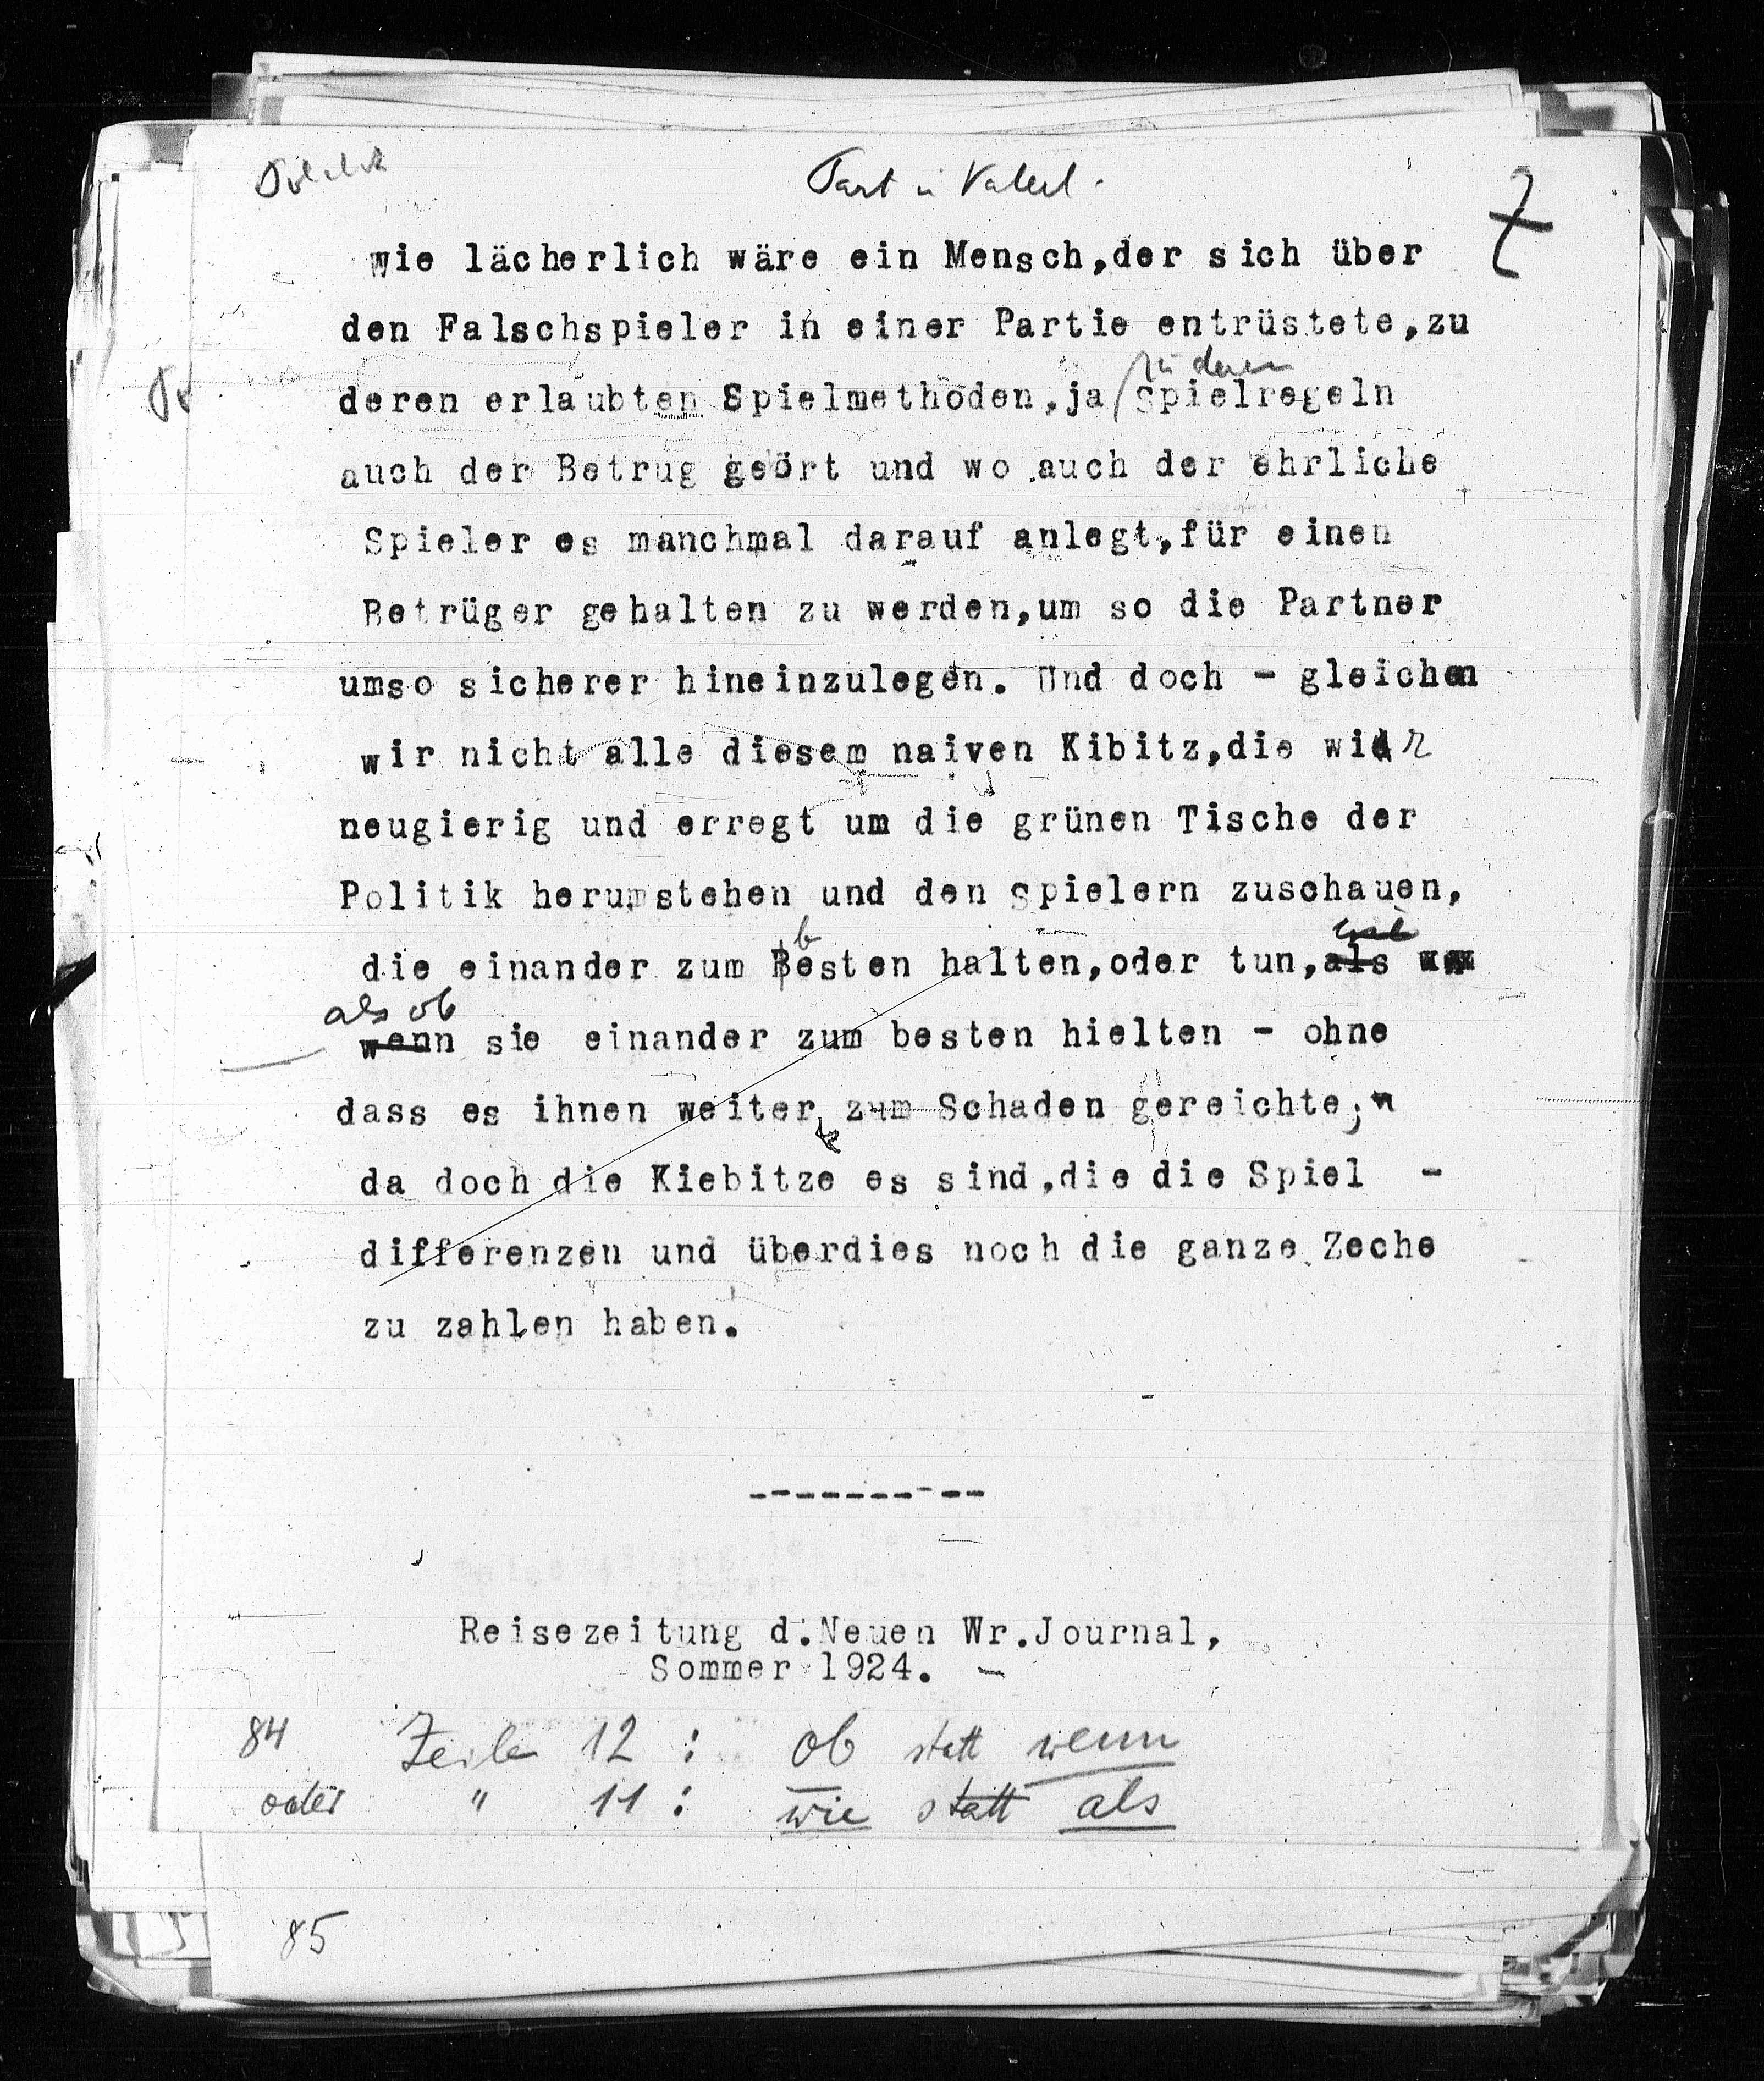 wie lächerlich wäre ein Mensch,der sich über
den Falschspieler in einer Partie entrüstete,zu
zu deren
deren erlaubten Spielmethoden,ja Spielregeln
auch der Betrug geört und wo auch der ehrliche
Spieler es manchmal darauf anlegt,für einen
Betrüger gehalten zu werden,um so die Partner
umso sicherer hineinzulegen. Und doch - gleichen
wir nicht alle diesem naiven Kibitz,die wir
neugierig und erregt um die grünen Tische der
Politik herumstehen und den Spielern zuschauen,
b
die einander zum Besten halten,oder tun,als
als ob
wenn sie einander zum besten hielten - ohne
dass es ihnen weiter zum Schaden gereichte;
da doch die Kiebitze es sind,die die Spiel -
differenzen und überdies noch die ganze Zeche
zu zahlen haben.
----------
Reisezeitung d.Neuen Wr.Journal,
Sommer 1924. -
84 Zeile 12 : ob statt wenn
oder " 11 : wie statt als
85